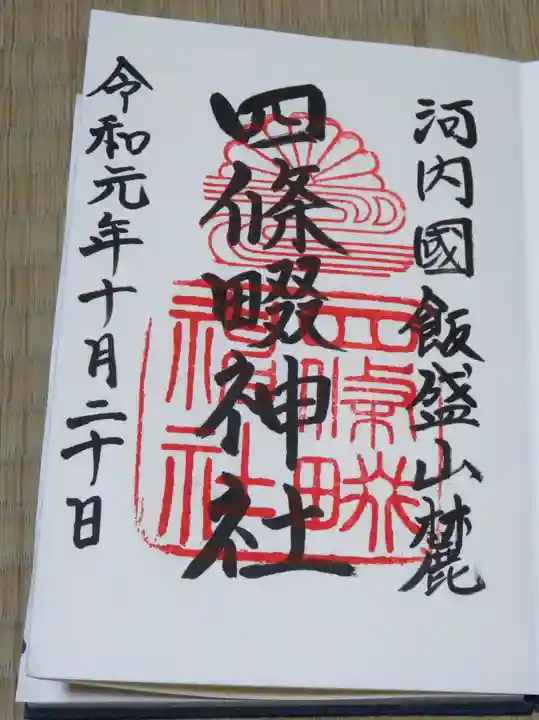 河内國飯盛山麓
四條畷神社
四條畷
神社
令和元年十月二十日